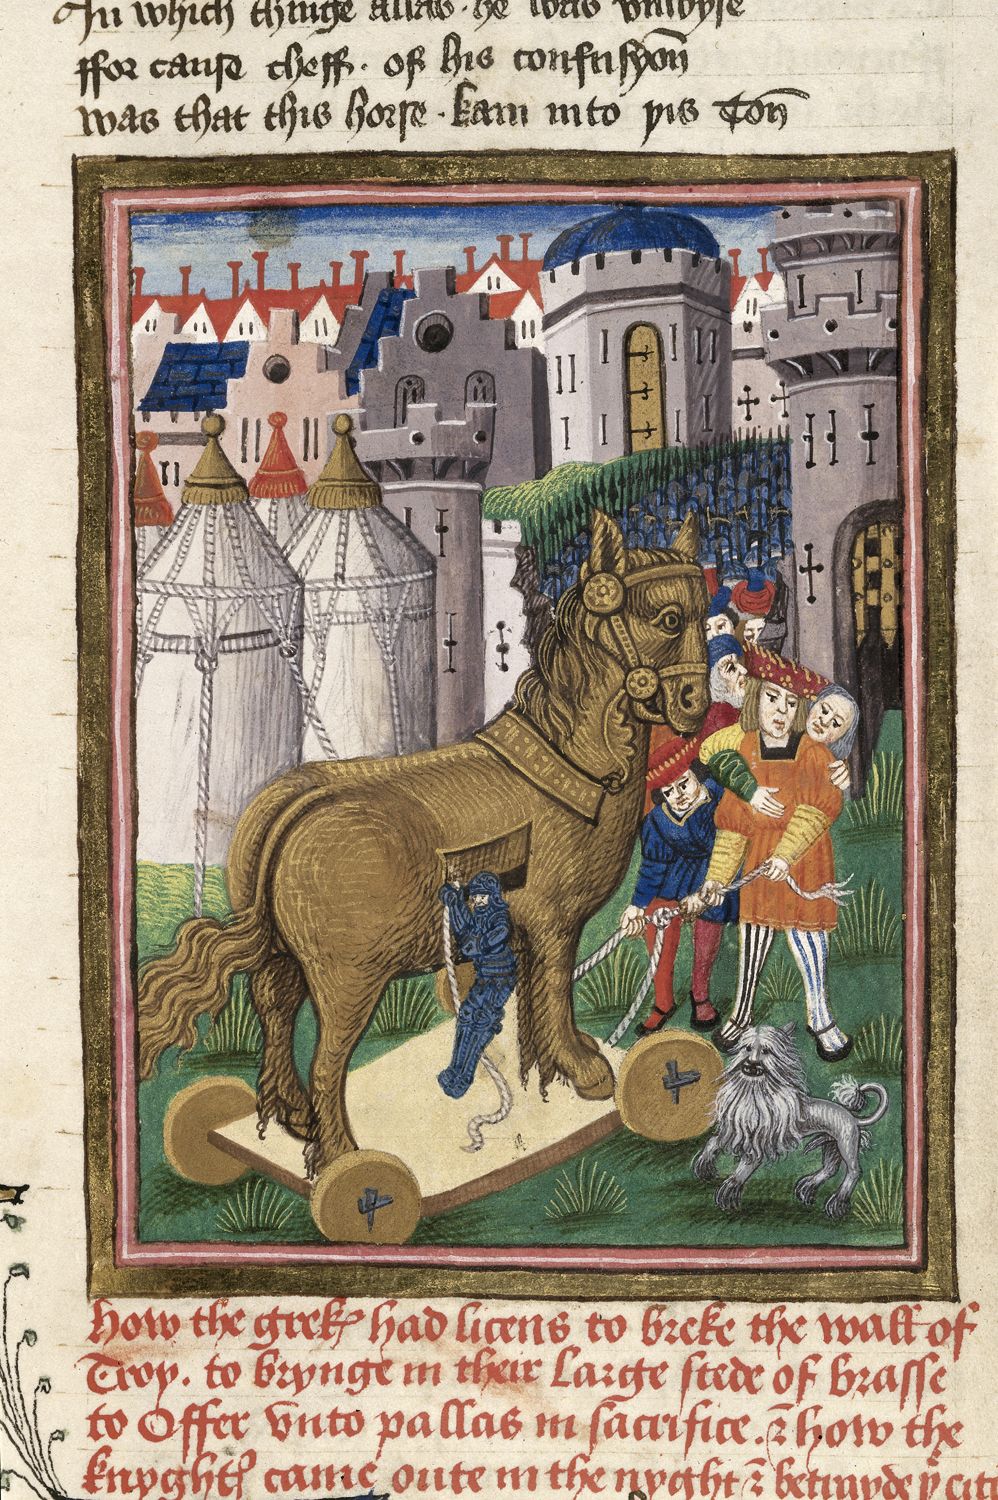 In which thinge allas · he was vnwyse
ffor cause cheff · of his confusyon
was that this horse · kam into yis Ton
How the grek had licens to breke the wall of
Troy. to brynge in their large stede of brasse
to Offer vnto pallas in sacrifice. & how the
knyght came oute in the nyght & betrayde yͤ cite